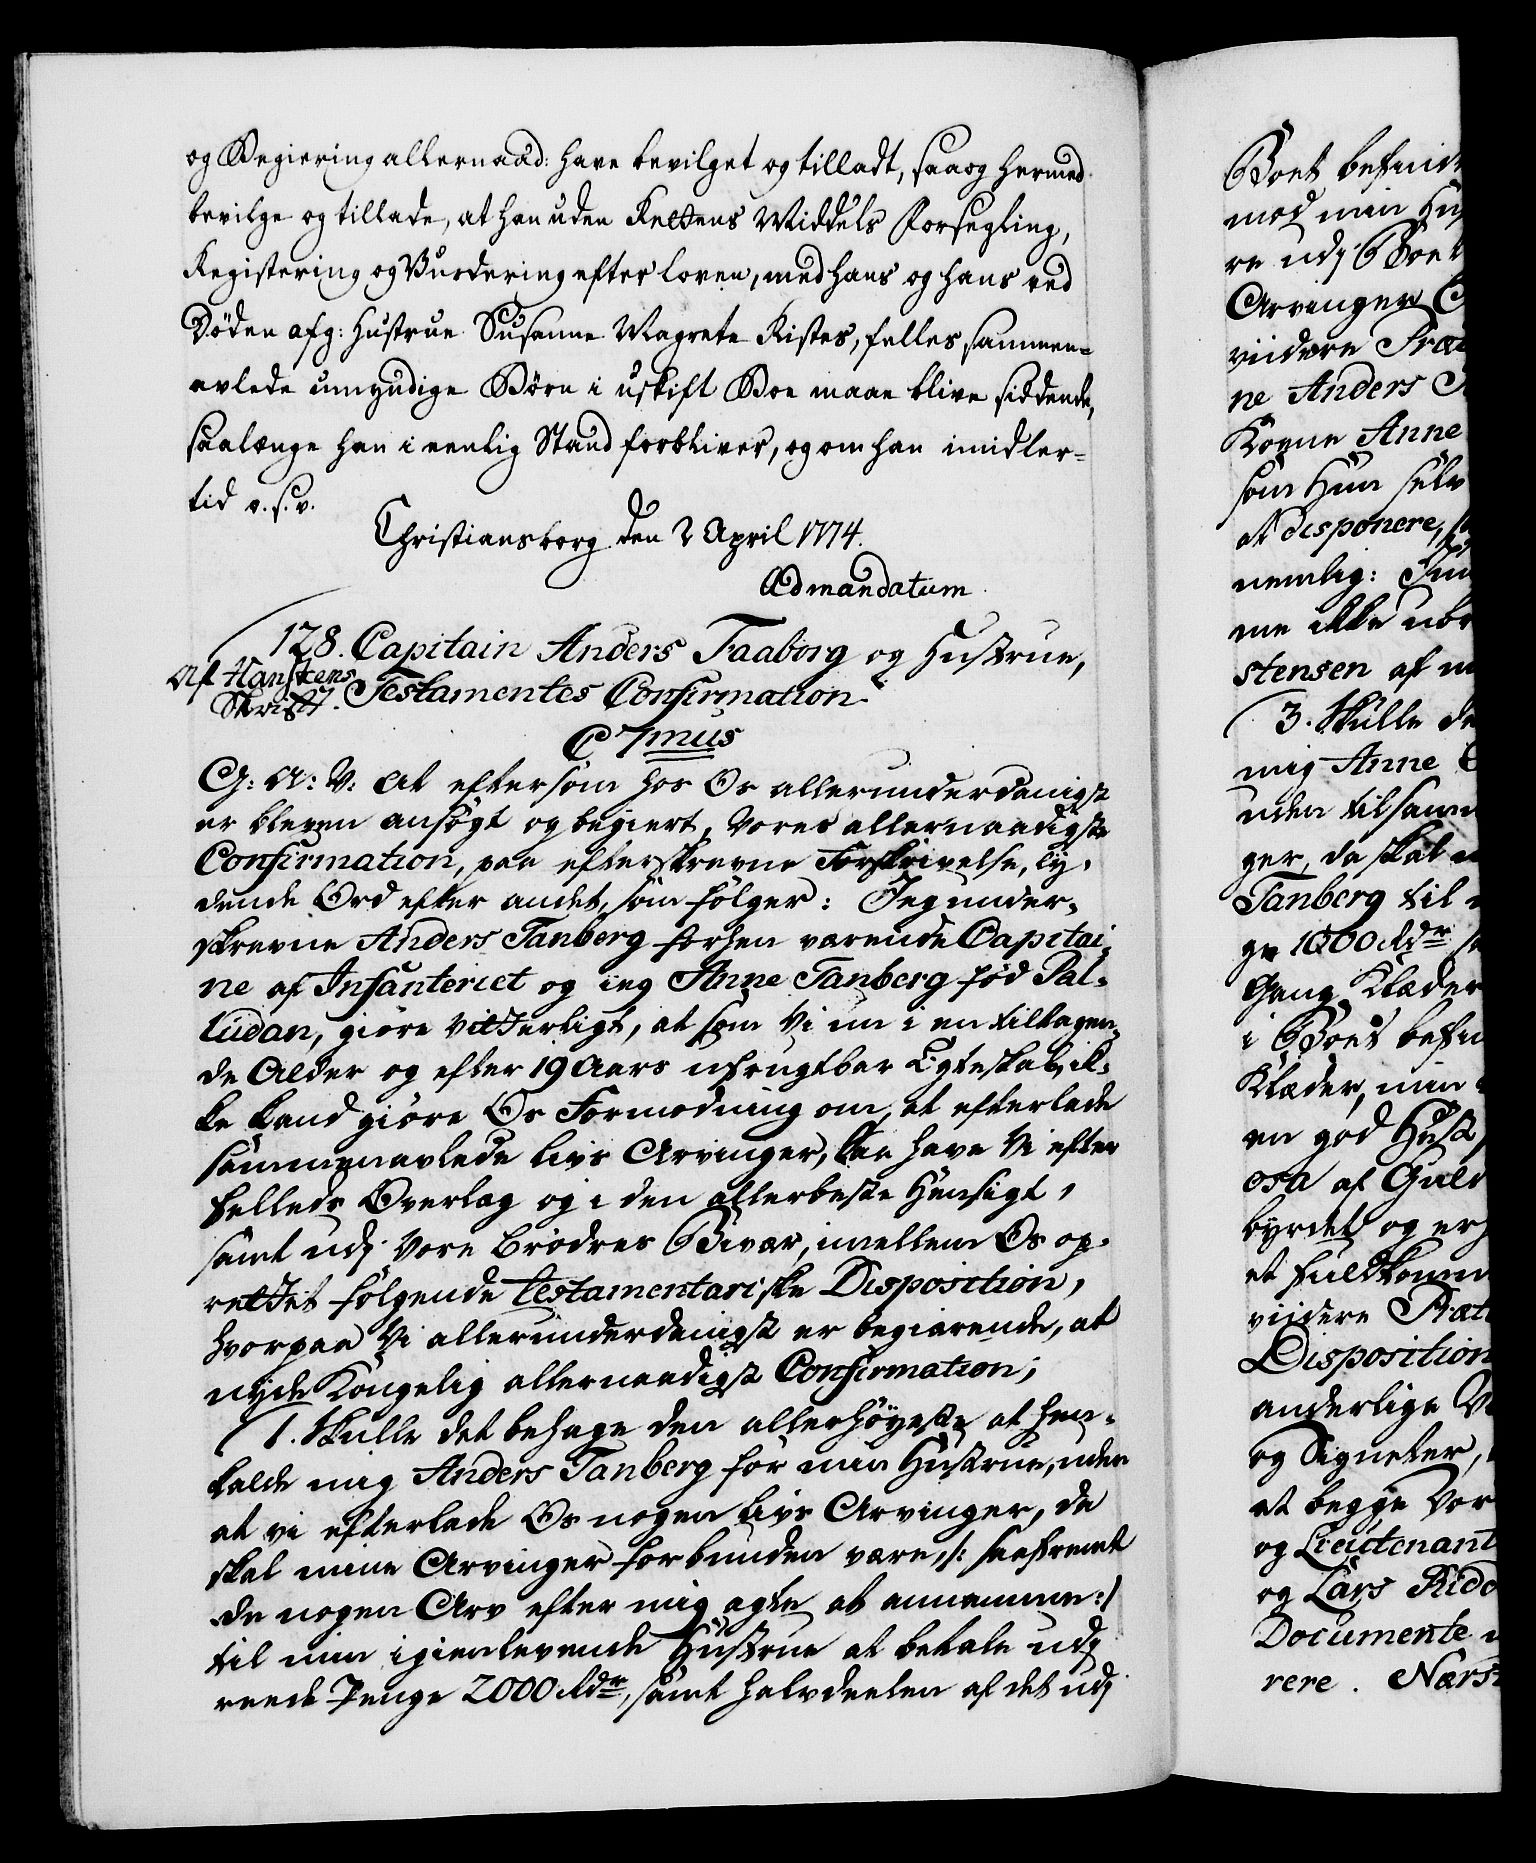 og Regiering allernaad: have bevilget og tilladt, saa og hermed
bevilge og tillade, at han uden Rettens Middels Forsegling,
Registering og Vurdering efter loven, med hans og hans ved
Døden afg: Hustrue Susanne Magrete Kistes, felles sammen-
avlede umyndige Børn i uskift Boe maae blive siddende,
saalænge han i eenlig Stand forbliver, og om han imidler-
tid o. s. v.
Christiansborg den 2 April 1774.
Ad mandatum
128. Capitain Anders Faaborg og Hustrue,
Af Hanstens
Skrift. Testamentes Confirmation
C 7mus
G: A: V: At eftersom hos Os allerunderdanigst
er bleven ansøgt og begiert, Vores allernaadigste
Confirmation, paa efterskrevne Forskrivelse, ly-
dende Ord efter andet, som følger: Jeg under-
skrevne Anders Tanberg forhen værende Capitai-
ne af Infanteriet og ieg Anne Tanberg fød Pal-
ludan, giøre vitterligt, at som Vi nu i en tiltagen-
de Alder og efter 19 Aars ufrugtbar Egteskab, ik-
ke kand giøre Os Formodning om, at efterlade
sammenavlede livs Arvinger, saa have Vi efter
felleds Overlæg og i den allerbeste Hensigt,
samt udj Vore Brødres Bivær, imellem Os op-
rettet følgende testamentariske Disposition,
hvorpaa Vi allerunderdanigst er begiærende, at
nyde Kongelig allernaadigst Confirmation;
1. Skulle det behage den allerhøyeste at hen-
kalde mig Anders Tanberg for min Hustrue, uden
at vi efterlade Os nogen livs Arvinger, da
skal mine Arvinger forbunden være, /: saafremt
de nogen Arv efter mig agte at annamme :/
til min igienlevende Hustrue at betale udj
reede Penge 2000 Rdr, samt halvdeelen af det udj
Boet befind
mod min Hu
re udj Boet
Arvinger
viidere Præ
ne Anders
Kone Anne
som Hun selv
at disponere,
nemlig:
me ikke
stensen af
3. Skulle de
mig Anne
uden tilsam
ger, da skal
Tanberg til
ge 1000 Rdr
Gang Klæder
i Boet befin
Klæder, min
en god Hest,
osa af Guld
byrdet og er
et fuldkomm
viidere Præt
Disposition
anderlige
og Signeter,
at begge Vor
og Lieutenant
og Lars Ridd
Documente
rere. Nærs